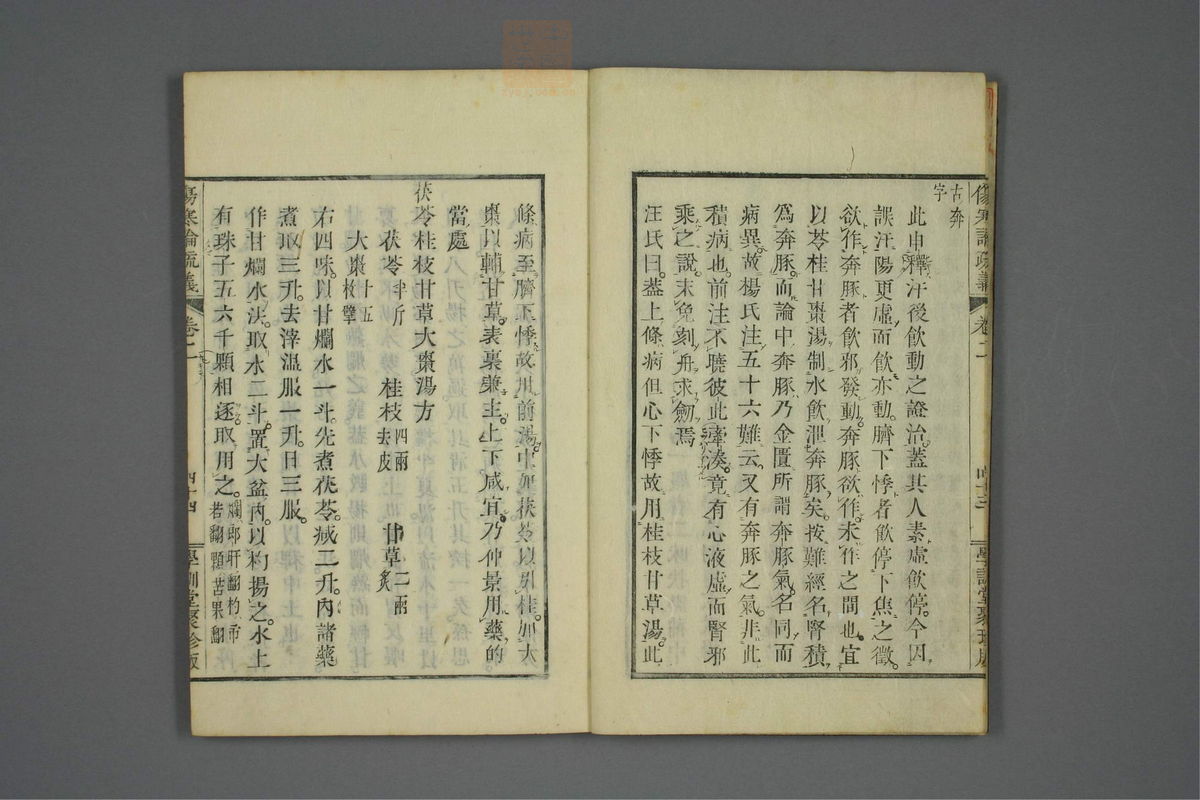 傷寒論疏義 卷二 四十三 學訓堂聚珍版
古奔
字
此申釋汗後飲動之證治。蓋其人素虛飲停。今因
誤汗陽更虛而飲亦動。臍下悸者飲停下焦之徵。
欲作奔豚者飲邪發動奔豚欲作。未作之間也。宜
以苓桂甘棗湯制水飲泄奔豚矣。按難經名腎積
爲奔豚。而論中奔豚乃金匱所謂奔豚氣。名同而
病異。故楊氏注五十六難云又有奔豚之氣。非此
積病也。前注不曉彼此牽湊。竟有心液虛而腎邪
乘之說。未免刻舟求劒焉
汪氏曰。蓋上條病但心下悸故用桂枝甘草湯。此
條病至臍下悸故用前湯中加茯苓以別桂。加大
棗以輔甘草。表裏兼主。上下咸宜。乃仲景用藥的
當處
茯苓桂枝甘草大棗湯方
茯苓半斤 桂枝四兩去皮 甘草二兩炙
大棗十五枚擘
右四味。以甘爛水一斗。先煮茯苓。減二升。內諸藥
煮取三升。去滓溫服一升。日三服。
作甘爛水法。取水二斗。置大盆內。以杓揚之。水上
有珠子五六千顆相逐。取用之。爛郎肝翻杓市
若翻顆苦果翻
傷寒論疏義 卷二 四十四 學訓堂聚珍版